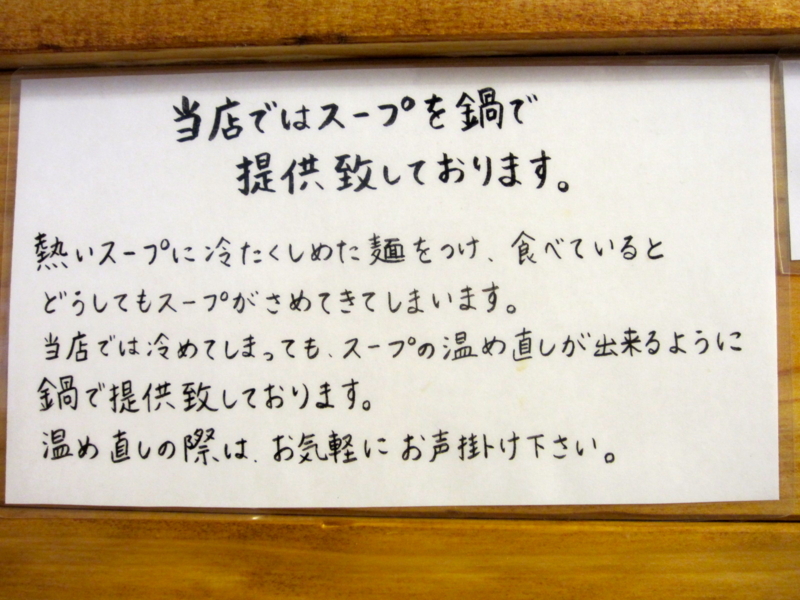 当店ではスープを鍋で
提供致しております。
熱いスープに冷たくしめた麺をつけ、食べていると
どうしてもスープがさめてきてしまいます。
当店では冷めてしまっても、スープの温め直しが出来るように
鍋で提供致しております。
温め直しの際は、お気軽にお声掛け下さい。